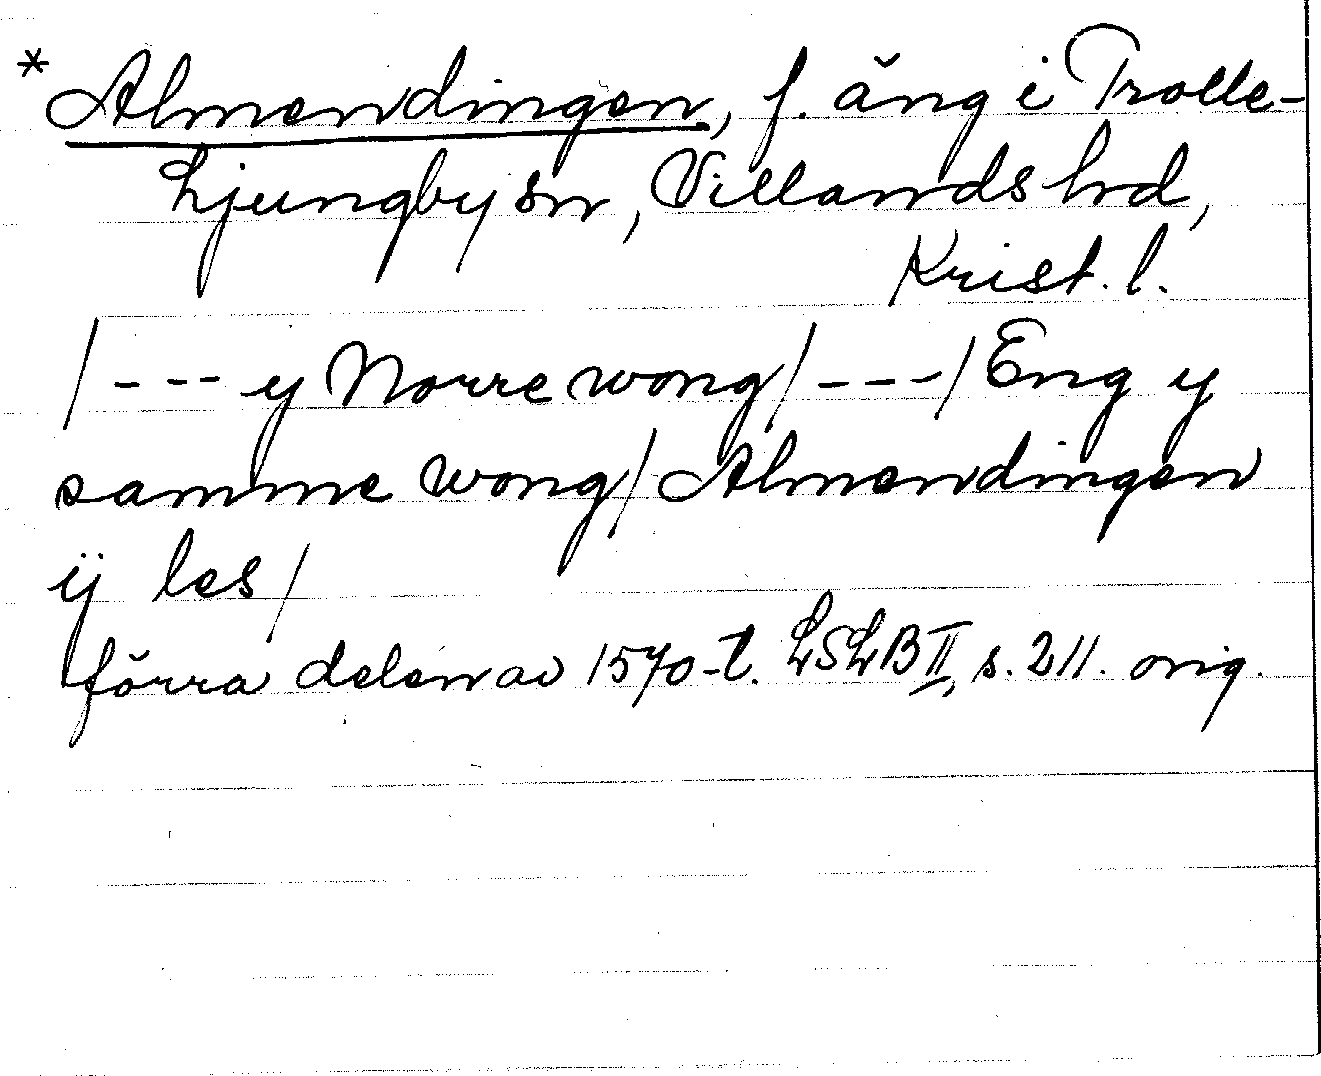 * Almendingen, f. äng i Trolle-
Ljungby sn, Villands hd,
Krist. l.
/ - - - y Norre wong / - - - / Eng y
samme wong / Almendingen
ij les /
förra delen av 1570-t. LSLB II, s. 211. orig.